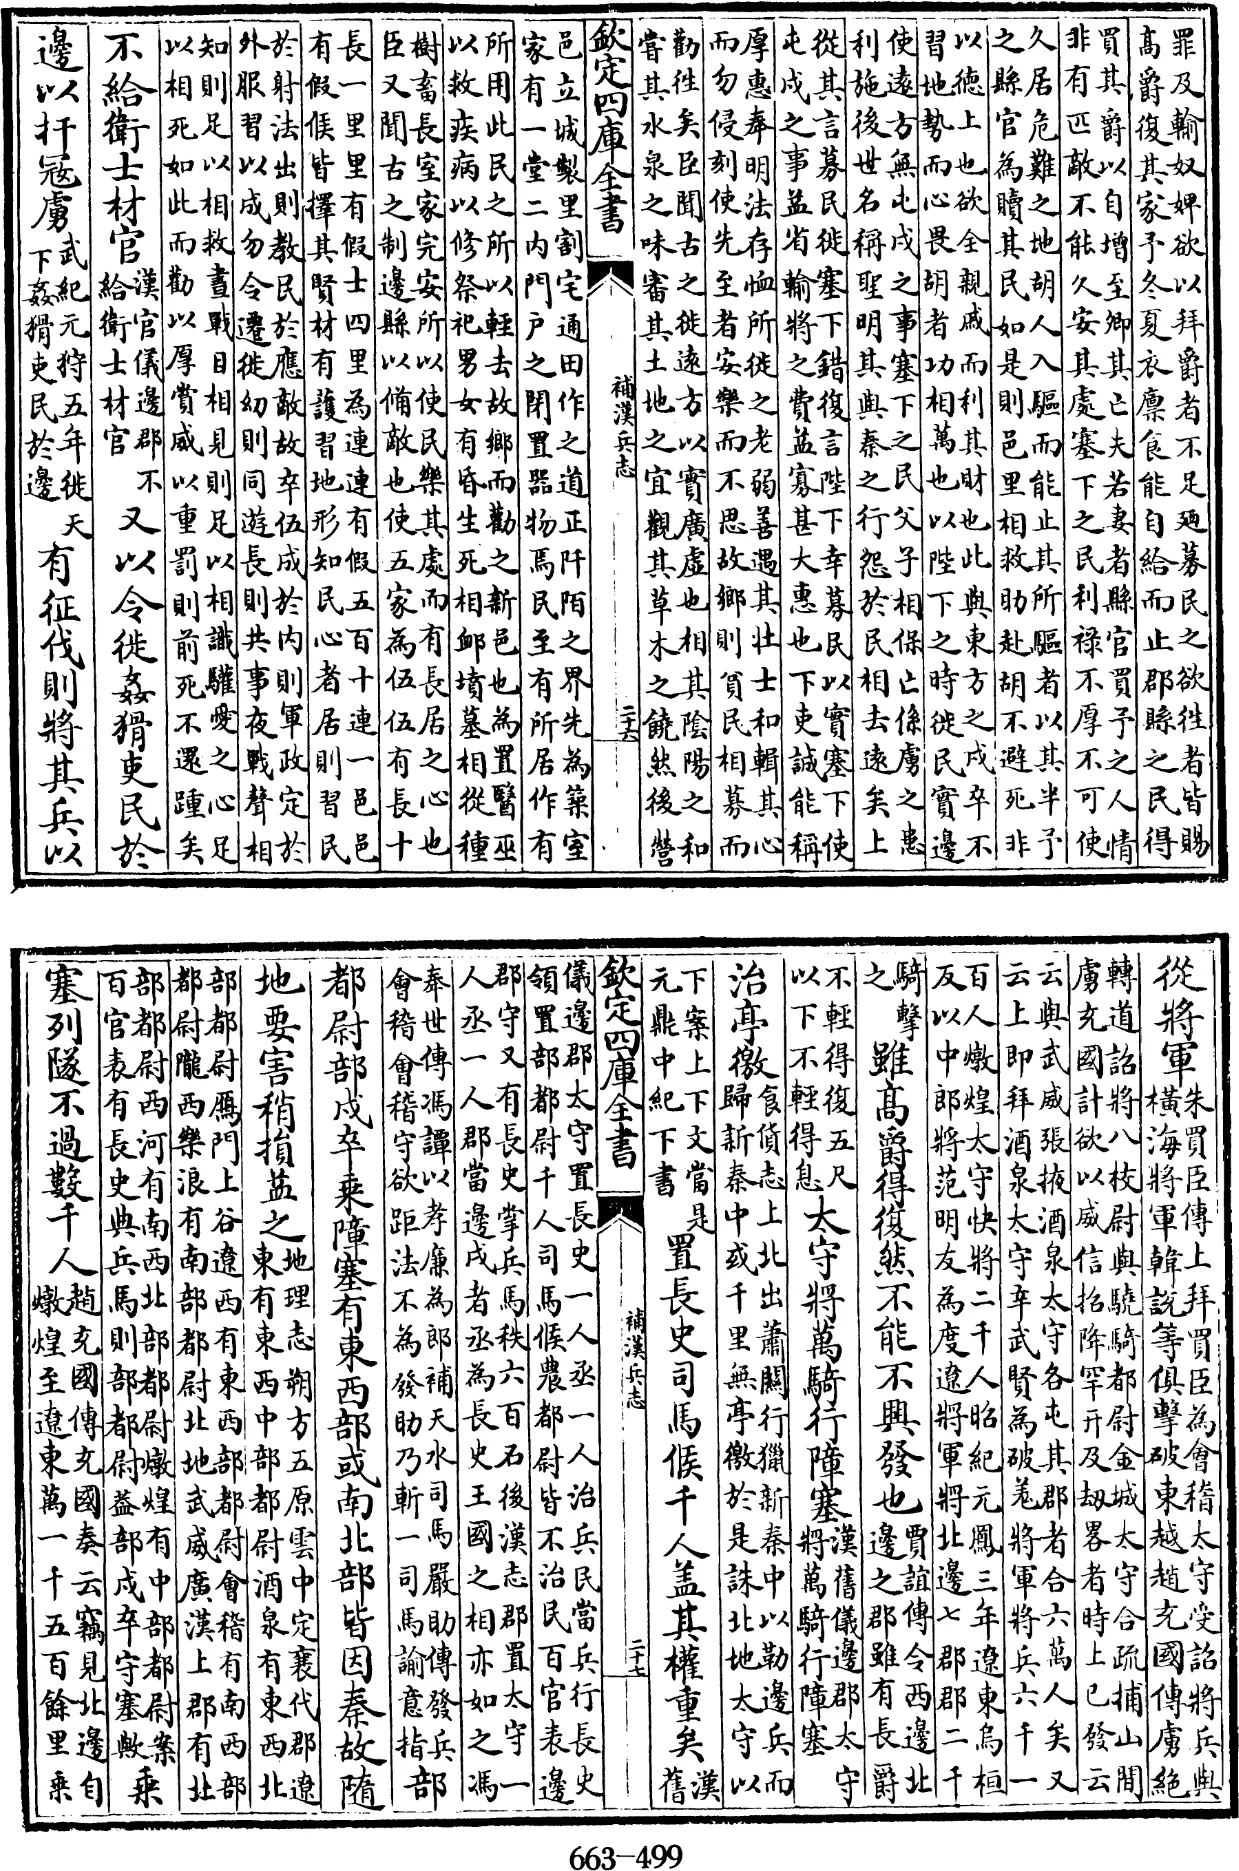 罪及輸奴婢欲以拜爵者不足廼募民之欲徃者皆賜
高爵復其家予冬夏衣廪食能自給而止郡縣之民得
買其爵以自增至卿其亡夫若妻者縣官買予之人情
非有匹敵不能久安其處塞下之民利禄不厚不可使
久居危難之地胡人入驅而能止其所驅者以其半予
之縣官為贖其民如是則邑里相救助赴胡不避死非
以徳上也欲全親戚而利其財也此與東方之戍卒不
習地勢而心畏胡者功相萬也以陛下之時徙民實邊
使逺方無屯戍之事塞下之民父子相保亡係虜之患
利施後世名稱聖明其與秦之行怨於民相去逺矣上
從其言募民徙塞下錯復言陛下幸募民以實塞下使
屯戍之事益省輸將之費益寡甚大惠也下吏誠能稱
厚惠奉明法存恤所徙之老弱善遇其壮士和輯其心
而勿侵刻使先至者安樂而不思故鄉則貧民相募而
勸徃矣臣聞古之徙逺方以實廣虚也相其陰陽之和
嘗其水泉之味審其土地之宜觀其草木之饒然後營
欽定四庫全書
補漢兵志
二十六
邑立城製里割宅通田作之道正阡陌之界先為築室
家有一堂二内門户之閉置器物焉民至有所居作有
所用此民之所以輕去故鄉而勸之新邑也為置醫巫
以救疾病以修祭祀男女有昏生死相䘏墳墓相從種
樹畜長室家完安所以使民樂其處而有長居之心也
臣又聞古之制邊縣以備敵也使五家為伍伍有長十
長一里里有假士四里為連連有假五百十連一邑邑
有假候皆擇其賢材有護習地形知民心者居則習民
於射法出則教民於應敵故卒伍成於内則軍政定於
外服習以成勿令遷徙幼則同遊長則共事夜戰聲相
知則足以相救晝戰目相見則足以相識驩愛之心足
以相死如此而勸以厚賞威以重罰則前死不還踵矣
不給衛士材官
漢官儀邊郡不
給衛士材官
又以令徙姦猾吏民於
邊以扞冦虜
武紀元狩五年徙天
下姦猾吏民於邊
有征伐則將其兵以
從將軍
朱買臣傳上拜買臣為會稽太守受詔將兵與
橫海將軍韓說等俱擊破東越趙充國傳虜絶
轉道詔將八校尉與驍騎都尉金城太守合疏捕山間
虜充國計欲以威信招降罕幵及刼畧者時上已發云
云與武威張掖酒泉太守各屯其郡者合六萬人矣又
云上即拜酒泉太守辛武賢為破羌將軍將兵六千一
百人燉煌太守快將二千人昭紀元鳳三年遼東烏桓
反以中郎將范明友為度遼將軍將北邊七郡郡二千
騎擊
之
雖高爵得復然不能不興發也
賈誼傳令西邊北
邊之郡雖有長爵
不輕得復五尺
以下不輕得息
太守將萬騎行障塞
漢舊儀邊郡太守
將萬騎行障塞
治亭徼
食貨志上北出蕭關行獵新秦中以勒邊兵而
歸新秦中或千里無亭徼於是誅北地太守以
下案上下文當是
元鼎中紀下書
置長史司馬候千人盖其權重矣
漢
舊
欽定四庫全書
補漢兵志
二十七
儀邊郡太守置長史一人丞一人治兵民當兵行長史
領置部都尉千人司馬候農都尉皆不治民百官表邊
郡守又有長史掌兵馬秩六百石後漢志郡置太守一
人丞一人郡當邊戍者丞為長史王國之相亦如之馮
奉世傳馮譚以孝廉為郎補天水司馬嚴助傳發兵
會稽會稽守欲距法不為發助乃斬一司馬諭意指
部
都尉部戍卒乘障塞有東西部或南北部皆因秦故隨
地要害稍損益之
地理志朔方五原雲中定襄代郡遼
東有東西中部都尉酒泉有東西北
部都尉鴈門上谷遼西有東西部都尉會稽有南西部
都尉隴西樂浪有南部都尉北地武威廣漢上郡有北
部都尉西河有南西北部都尉燉煌有中部都尉案
百官表有長史典兵馬則部都尉葢部戍卒守塞歟
乘
塞列隧不過數千人
趙充國傳充國奏云竊見北邊自
燉煌至遼東萬一千五百餘里乘
663-499